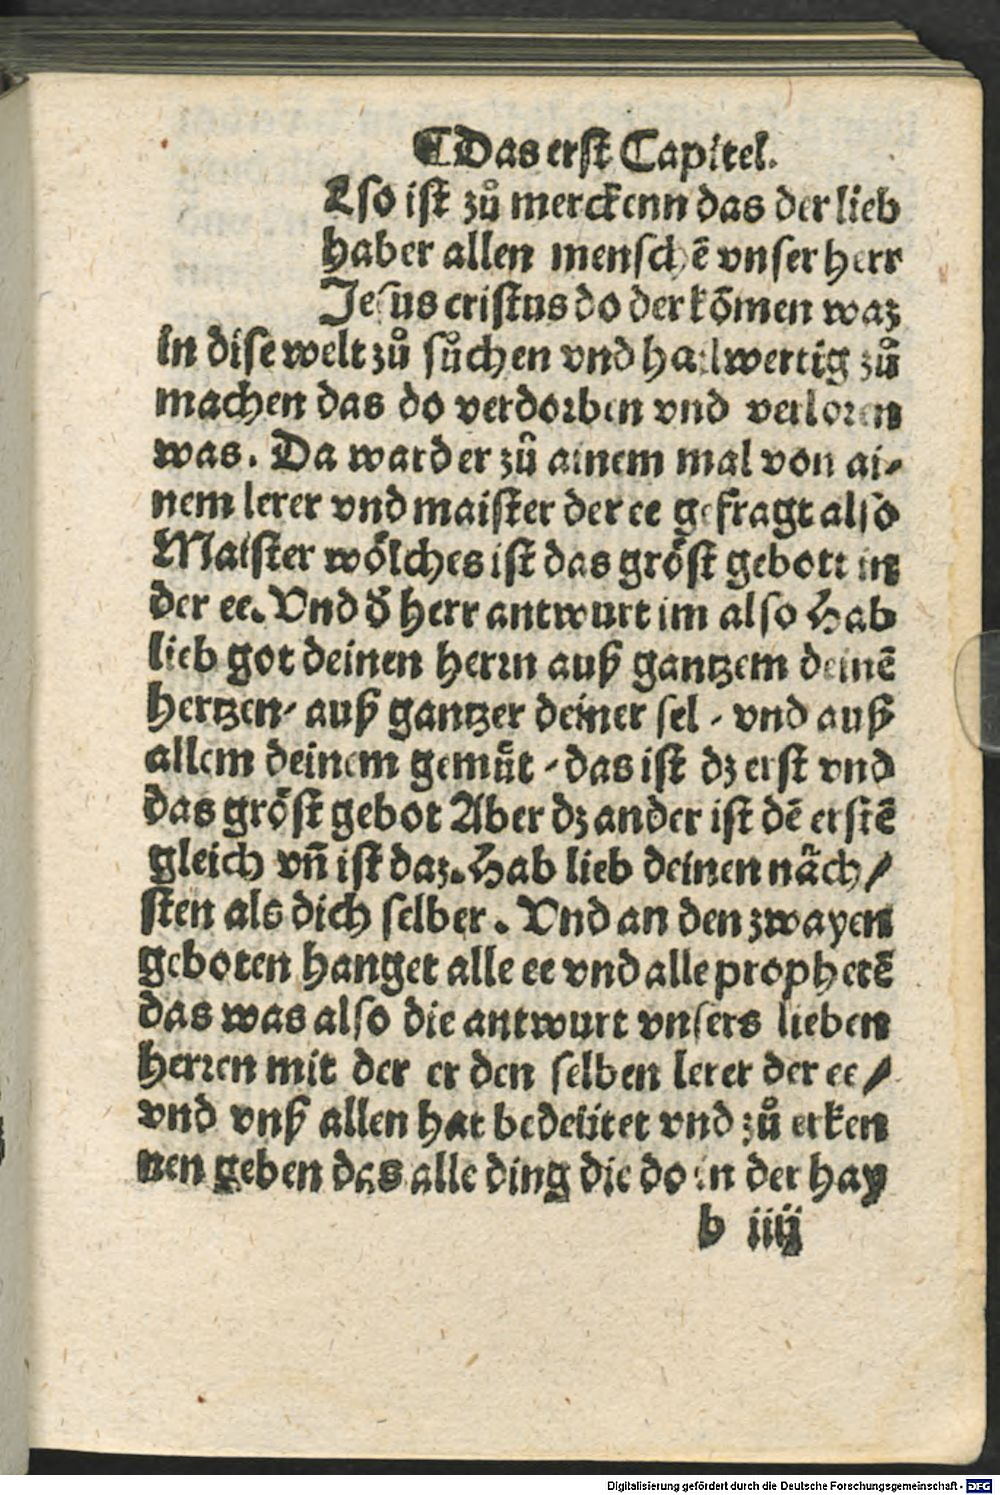 ¶Das erst Capitel.
Lso ist zů merckenn das der lieb
haber allen menschē vnser herr
Jesus cristus do der kōmen waz
in dise welt zů sůchen vnd hailwertig zů
machen das do verdorben vnd verloren
was. Da ward er zů ainem mal von ai⸗
nem lerer vnd maister der ee gefragt also
Maister wölches ist das gröst gebott in
der ee. Vnd ð herr antwurt im also Hab
lieb got deinen herrn auß gantzem deinē
hertzen⸗ auß gantzer deiner sel ⸗ vnd auß
allem deinem gemüt ⸗ das ist dz erst vnd
das gröst gebot Aber dz ander ist dē erstē
gleich vn̄ ist daz. Hab lieb deinen näch/
sten als dich selber. Vnd an den zwayen
geboten hanget alle ee vnd alle prophetē
das was also die antwurt vnsers lieben
herren mit der er den selben lerer der ee/
vnd vnß allen hat bedeütet vnd zů erken
nen geben das alle ding die do in der hay
b iiij
Digitalisierung gefördert durch die Deutsche Forschungsgemeinschaft - DFG